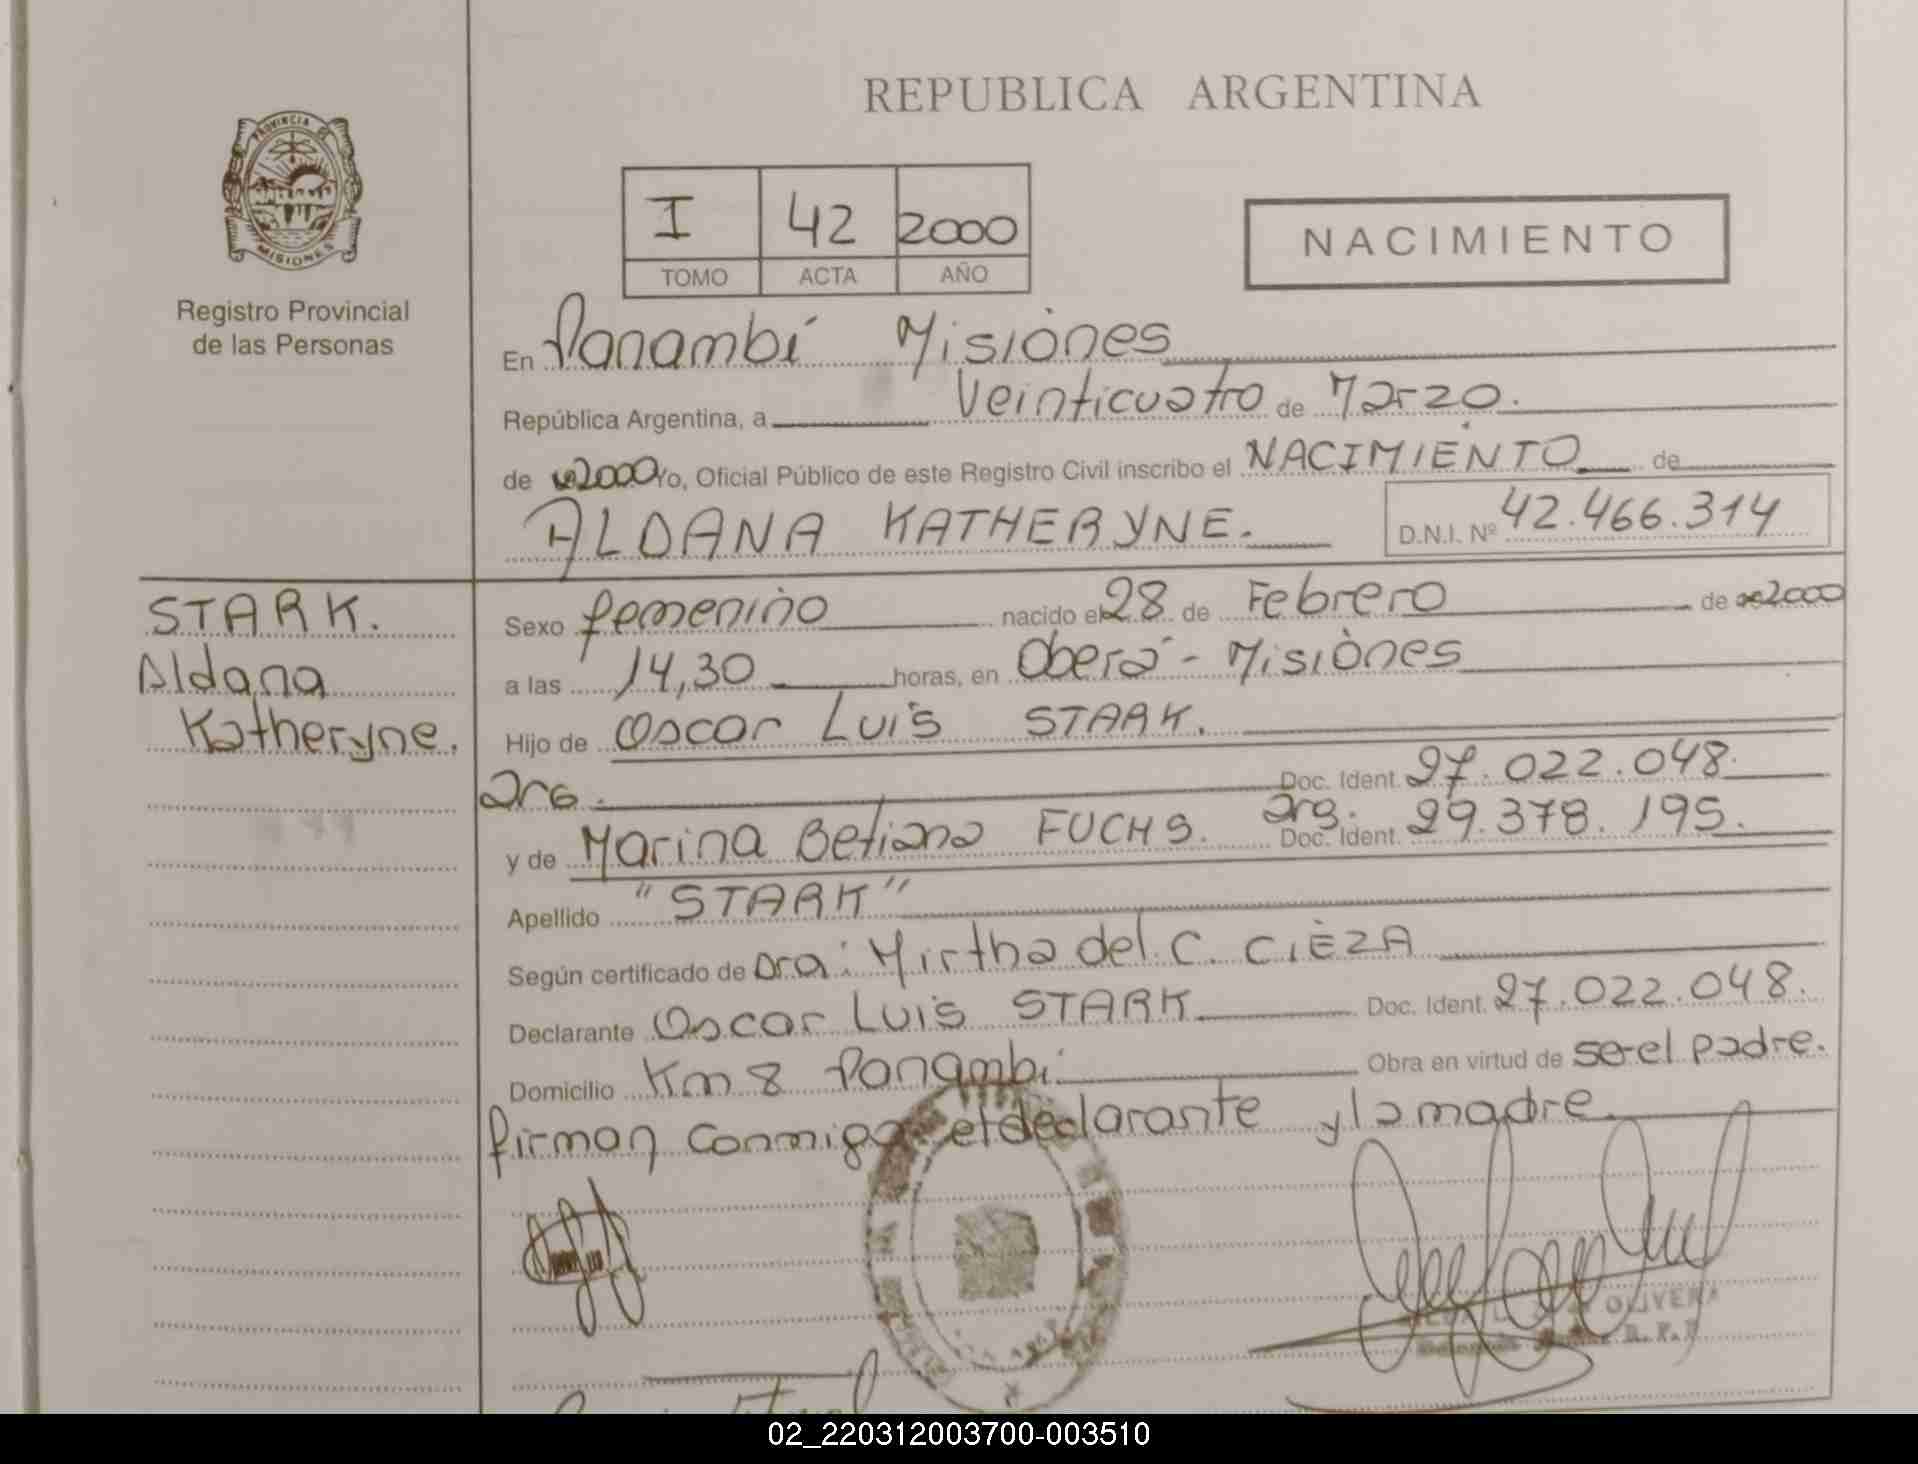 REPUBLICA ARGENTINA
PROVINCIA DE
MISIONES
Registro Provincial
de las Personas
I 42 2000
TOMO ACTA AÑO
NACIMIENTO
En Panambí Misiones
República Argentina, a Veinticuatro de Marzo.
de 2000 Yo, Oficial Público de este Registro Civil inscribo el NACIMIENTO de
ALDANA KATHERYNE. D.N.I. Nº 42.466.314
STARK.
Aldana
Katheryne.
Sexo femenino nacido el 28 de Febrero de 2000
a las 14,30 horas, en Oberá - Misiones
Hijo de Oscar Luis STARK.
arg. Doc. Ident. 27.022.048.
y de Marina Betiana FUCHS. arg. Doc. Ident. 29.378.195.
Apellido "STARK"
Según certificado de Dra: Mirtha del C. CIEZA
Declarante Oscar Luis STARK Doc. Ident. 27.022.048.
Domicilio Km 8 Panambi Obra en virtud de ser el padre.
firman conmigo el declarante y la madre.
OLIVERA
R. P. P
02_220312003700-003510